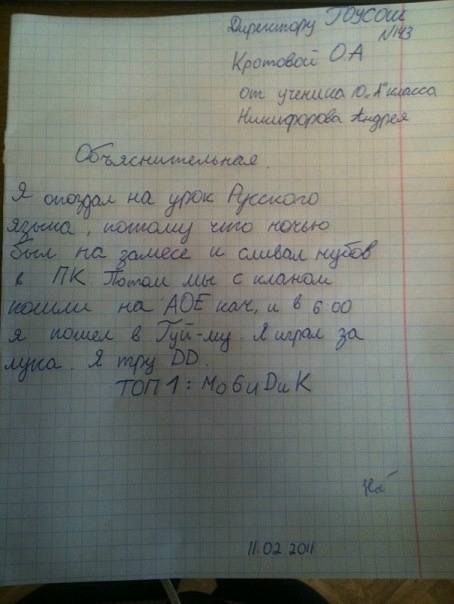 Директору ГОУСОШ
№143
Кротовой О.А
от ученика 10 „А" класса
Никифорова Андрея
Объяснительная.
Я опоздал на урок Русского
языка, потому что ночью
был на замесе и сливал нубов
в ПК. Потом мы с кланом
пошли на АОЕ кач, и в 6:00
я пошел в Гуй-му. Я играл за
лука. Я тру DD.
ТОП 1: МоБиDиК
11.02.2011